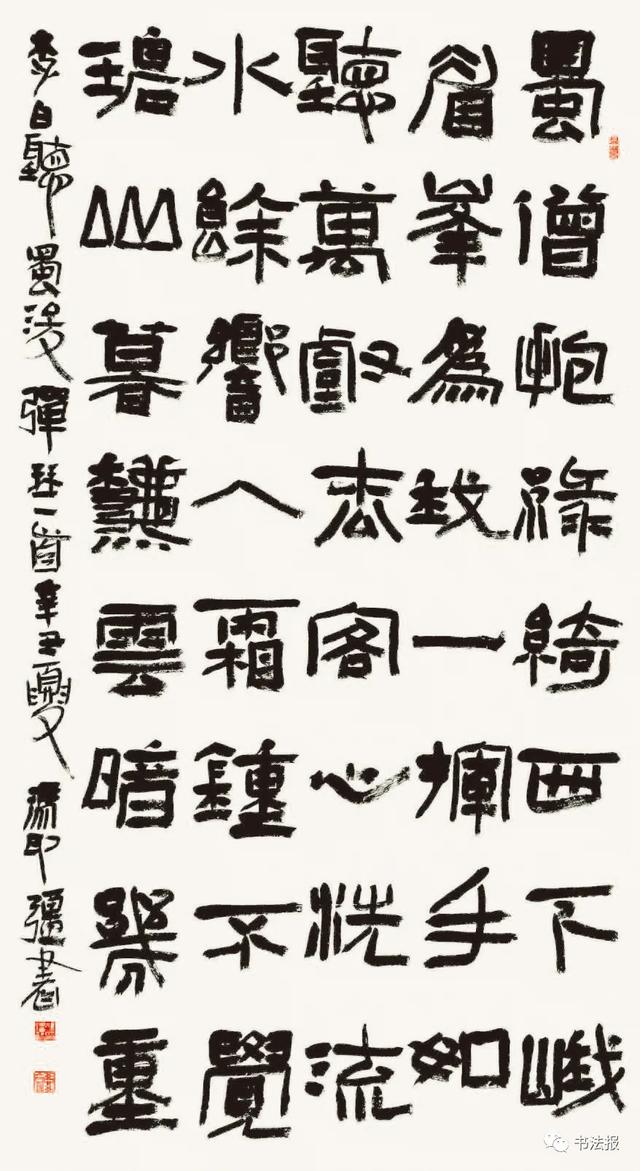 蜀僧抱綠綺西下峨
眉峯為我一揮手如
聽萬壑松客心洗流
水餘響入霜鍾不覺
碧山暮秋雲暗幾重
李白聽蜀浚彈琴一首辛丑夏彊書
书法报